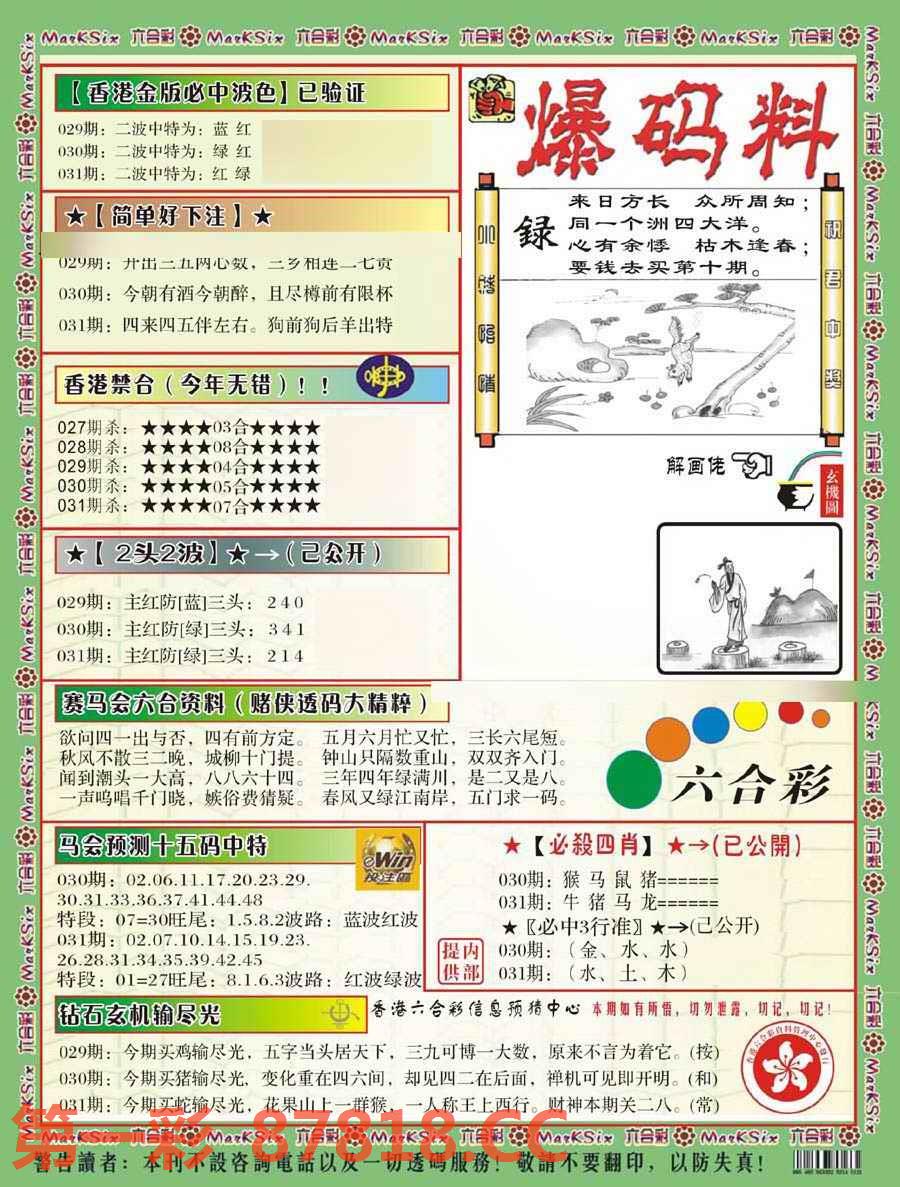 MarKSix 六合彩 MarKSix 六合彩 MarKSix 六合彩 MarKSix 六合彩 MarKSix 六合彩
【香港金版必中波色】已验证
029期：二波中特为：蓝 红
030期：二波中特为：绿 红
031期：二波中特为：红 绿
★【简单好下注】★
029期：开出三五两心数，三乡相连二七贵
030期：今朝有酒今朝醉，且尽樽前有限杯
031期：四来四五伴左右。狗前狗后羊出特
香港禁合（今年无错）！！
027期杀：★★★★03合★★★★
028期杀：★★★★08合★★★★
029期杀：★★★★04合★★★★
030期杀：★★★★05合★★★★
031期杀：★★★★07合★★★★
★【 2头2波】★→(已公开)
029期：主红防[蓝]三头：2 4 0
030期：主红防[绿]三头：3 4 1
031期：主红防[绿]三头：2 1 4
爆码料
録
来日方长 众所周知；
同一个洲四大洋。
心有余悸 枯木逢春；
要钱去买第十期。
祝君中奖
解画佬
玄機圖
赛马会六合资料（赌侠透码大精粹）
欲问四一出与否，四有前方定。 五月六月忙又忙，三长六尾短。
秋风不散三二晚，城柳十门提。 钟山只隔数重山，双双齐入门。
闻到潮头一大高，八八六十四。 三年四年绿满川，是二又是八。
一声鸣唱千门晓，嫉俗费猜疑。 春风又绿江南岸，五门求一码。
六合彩
马会预测十五码中特
eWin
投注區
030期：02.06.11.17.20.23.29.
30.31.33.36.37.41.44.48
特段：07=30旺尾：1.5.8.2波路：蓝波红波
031期：02.07.10.14.15.19.23.
26.28.31.34.35.39.42.45
特段：01=27旺尾：8.1.6.3波路：红波绿波
★【必殺四肖】★→(已公開)
030期：猴 马 鼠 猪======
031期：牛 猪 马 龙======
★〖必中3行准〗★→(已公开)
030期：（金、水、水）
031期：（水、土、木）
内部提供
钻石玄机输尽光
香港六合彩信息预猜中心 本期如有所悟，切勿泄露，切记，切记！
029期：今期买鸡输尽光，五字当头居天下，三九可博一大数，原来不言为着它。(按)
030期：今期买猪输尽光，变化重在四六间，却见四二在后面，禅机可见即开明。(和)
031期：今期买蛇输尽光，花果山上一群猴，一人称王上西行，财神本期关二八。(常)
第一彩 87818.CC
MarKSix 六合彩 MarKSix 六合彩 MarKSix 六合彩 MarKSix 六合彩 MarKSix 六合彩
警告讀者：本刊不設咨詢電話以及一切透碼服務！敬請不要翻印，以防失真！